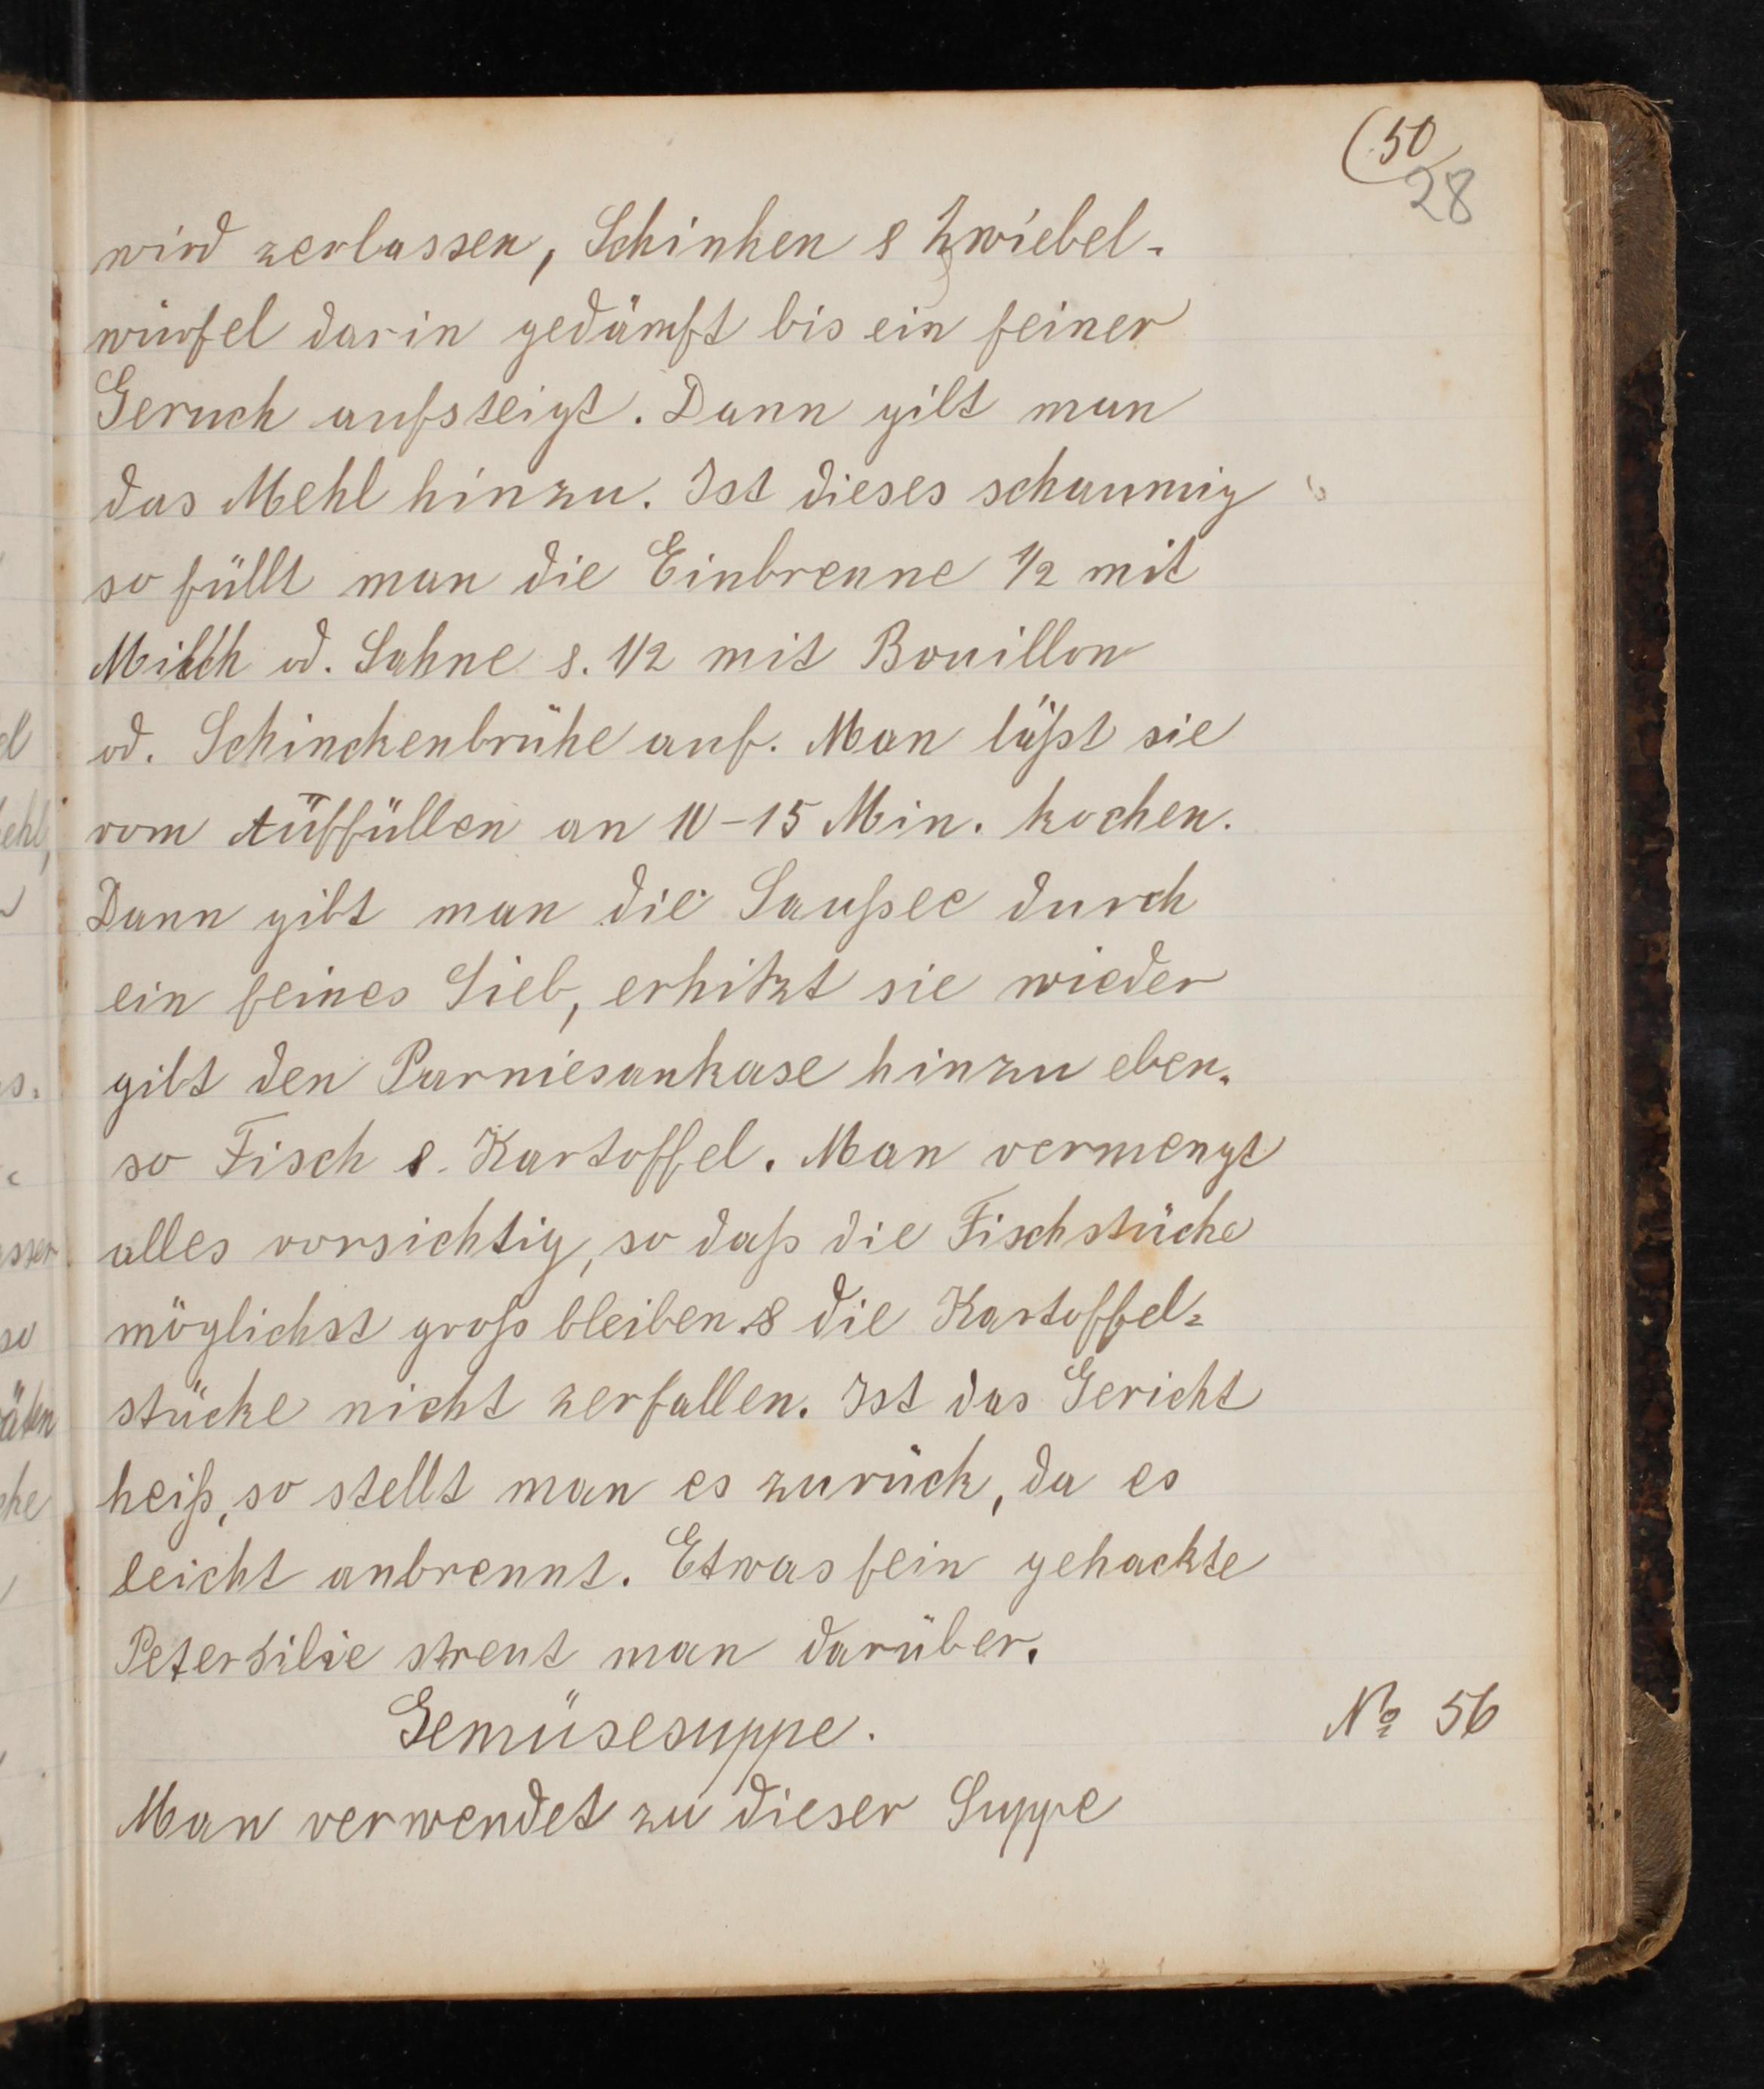 (50
28
wird zerlassen, Schinken & Zwiebel-
würfel darin gedämft bis ein feiner
Geruch aufsteigt. Dann gilt man
das Mehl hinzu. Ist dieses schaumig
so füllt man die Einbrenne 1/2 mit
Milch od. Sahne &. 1/2 mit Bouillon
od. Schinckenbrühe auf. Man läßt sie
vom Auffüllen an 10-15 Min. kochen.
Dann gibt man die Saußee durch
ein feines Sieb, erhitzt sie wieder
gibt den Parmesankase hinzu eben-
so Fisch &. Kartoffel. Man vermengt
alles vorsichtig, so daß die Fischstücke
möglichst groß bleiben & die Kartoffel=
stücke nicht zerfallen. Ist das Gericht
heiß, so stellt man es zurück, da es
leicht anbrennt. Etwas fein gehackte
Petersilie streut man darüber.
Gemüsesuppe. No 56
Man verwendet zu dieser Suppe